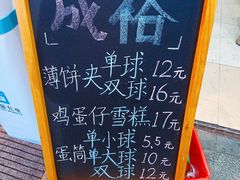 薄饼夹单球12元
双球16元
鸡蛋仔雪糕17元
单小球5.5元
蛋筒单大球10元
双球12元